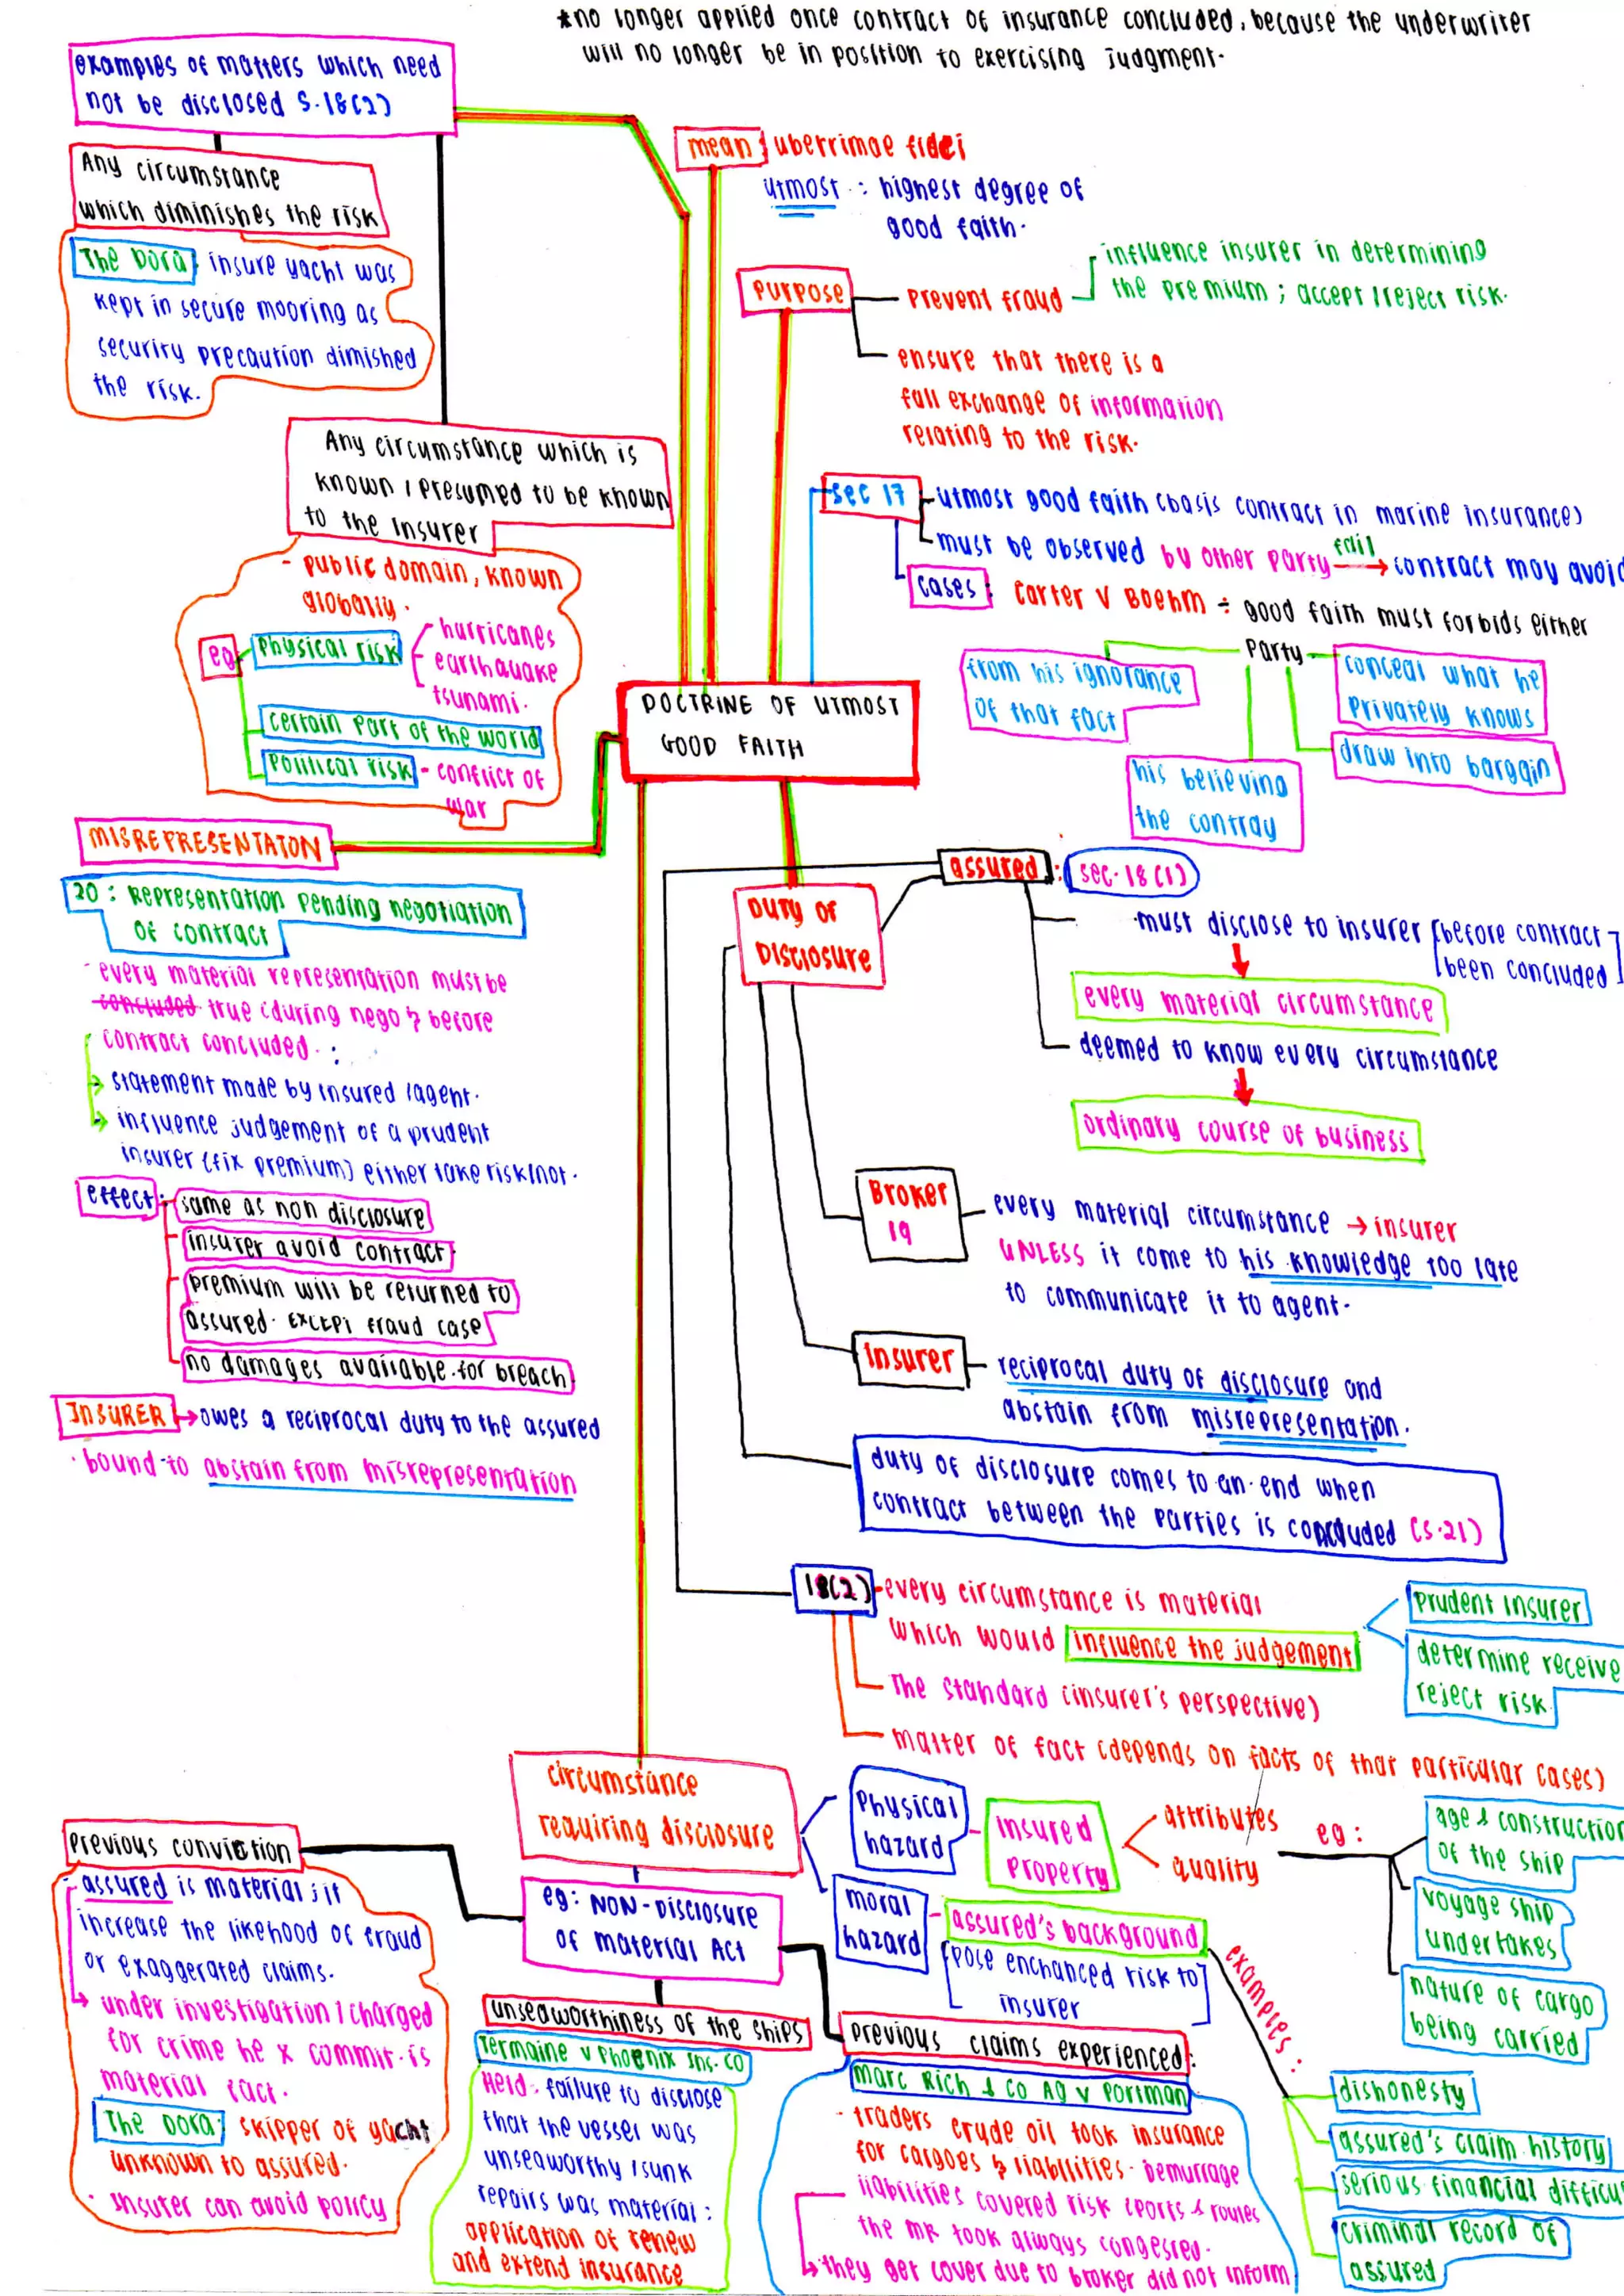 *no longer applied once contract of insurance concluded, because the underwriter
will no longer be in position to exercising judgment.
examples of matters which need
not be disclosed S.18(2)
Any circumstance
which diminishes the risk
The Dora : insure yacht was
kept in secure mooring as
security precaution dimished
the risk.
Any circumstance which is
known / presumed to be known
to the insurer
- public domain, known
globally.
eg
physical risk
hurricanes
earthquake
tsunami.
certain part of the world
political risk - conflict of
war
mean : uberrimae fidei
utmost : highest degree of
good faith.
purpose
prevent fraud
influence insurer in determining
the premium ; accept / reject risk.
ensure that there is a
full exchange of information
relating to the risk.
sec 17
utmost good faith (basis contract in marine insurance)
must be observed by other party fail → contract may avoid
cases : Carter v Boehm ÷ good faith must forbids either
party
from his ignorance
of that fact
conceal what he
privately knows
draw into bargain
his believing
the contray
DOCTRINE OF UTMOST
GOOD FAITH
MISREPRESENTATON
20 : Representation pending negotiation
of contract
- every material representation must be
concluded true (during nego & before
contract concluded. :
→ statement made by insured / agent.
→ influence judgement of a prudent
insurer (fix premium) either take risk/not.
effect :
same as non disclosure
insurer avoid contract
premium will be returned to
assured. EXCEPT fraud case
no damages available for breach
INSURER → owes a reciprocal duty to the assured
· bound to abstain from misrepresentation
DUTY OF
DISCLOSURE
assured : sec. 18 (1)
·must disclose to insurer [before contract
been concluded]
every material circumstance
deemed to know every circumstance
ordinary course of business
Broker
19
every material circumstance → insurer
UNLESS it come to his knowledge too late
to communicate it to agent.
insurer
reciprocal duty of disclosure and
abstain from misrepresentation.
duty of disclosure comes to an end when
contract between the parties is concluded (S.21)
18(2) -every circumstance is material
which would influence the judgement
prudent insurer
determine receive
reject risk
The standard (insurer's perspective)
matter of fact (depends on facts of that particular cases)
circumstance
requiring disclosure
physical
hazard
- insured
property
attributes
quality
eg :
age & construction
of the ship
voyage ship
undertakes
nature of cargo
being carried
moral
hazard
- assured's background
[pose enchanced risk to
insurer]
examples :
dishonesty
assured's claim history
serious financial difficu
criminal record of
assured
eg: NON-DISCLOSURE
OF material Act
previous conviction
- assured is material ; it
increase the likehood of fraud
or exaggerated claims.
→ under investigation / charged
for crime he x commit. is
material fact.
The Dora : skipper of yacht
unknown to assured.
· insurer can avoid policy
unseaworthiness of the ships
Termaine v Phoenix Ins. Co
Held : failure to disclose
that the vessel was
unseaworthy / sunk
repairs was material :
application of renew
and extend insurance
previous claims experienced :
Marc Rich & Co Ag v Portman
- traders crude oil took insurance
for cargoes & liabilities. Demurrage
liabilities covered risk (ports & routes
the MR took always congested.
→ they get cover due to broker did not inform